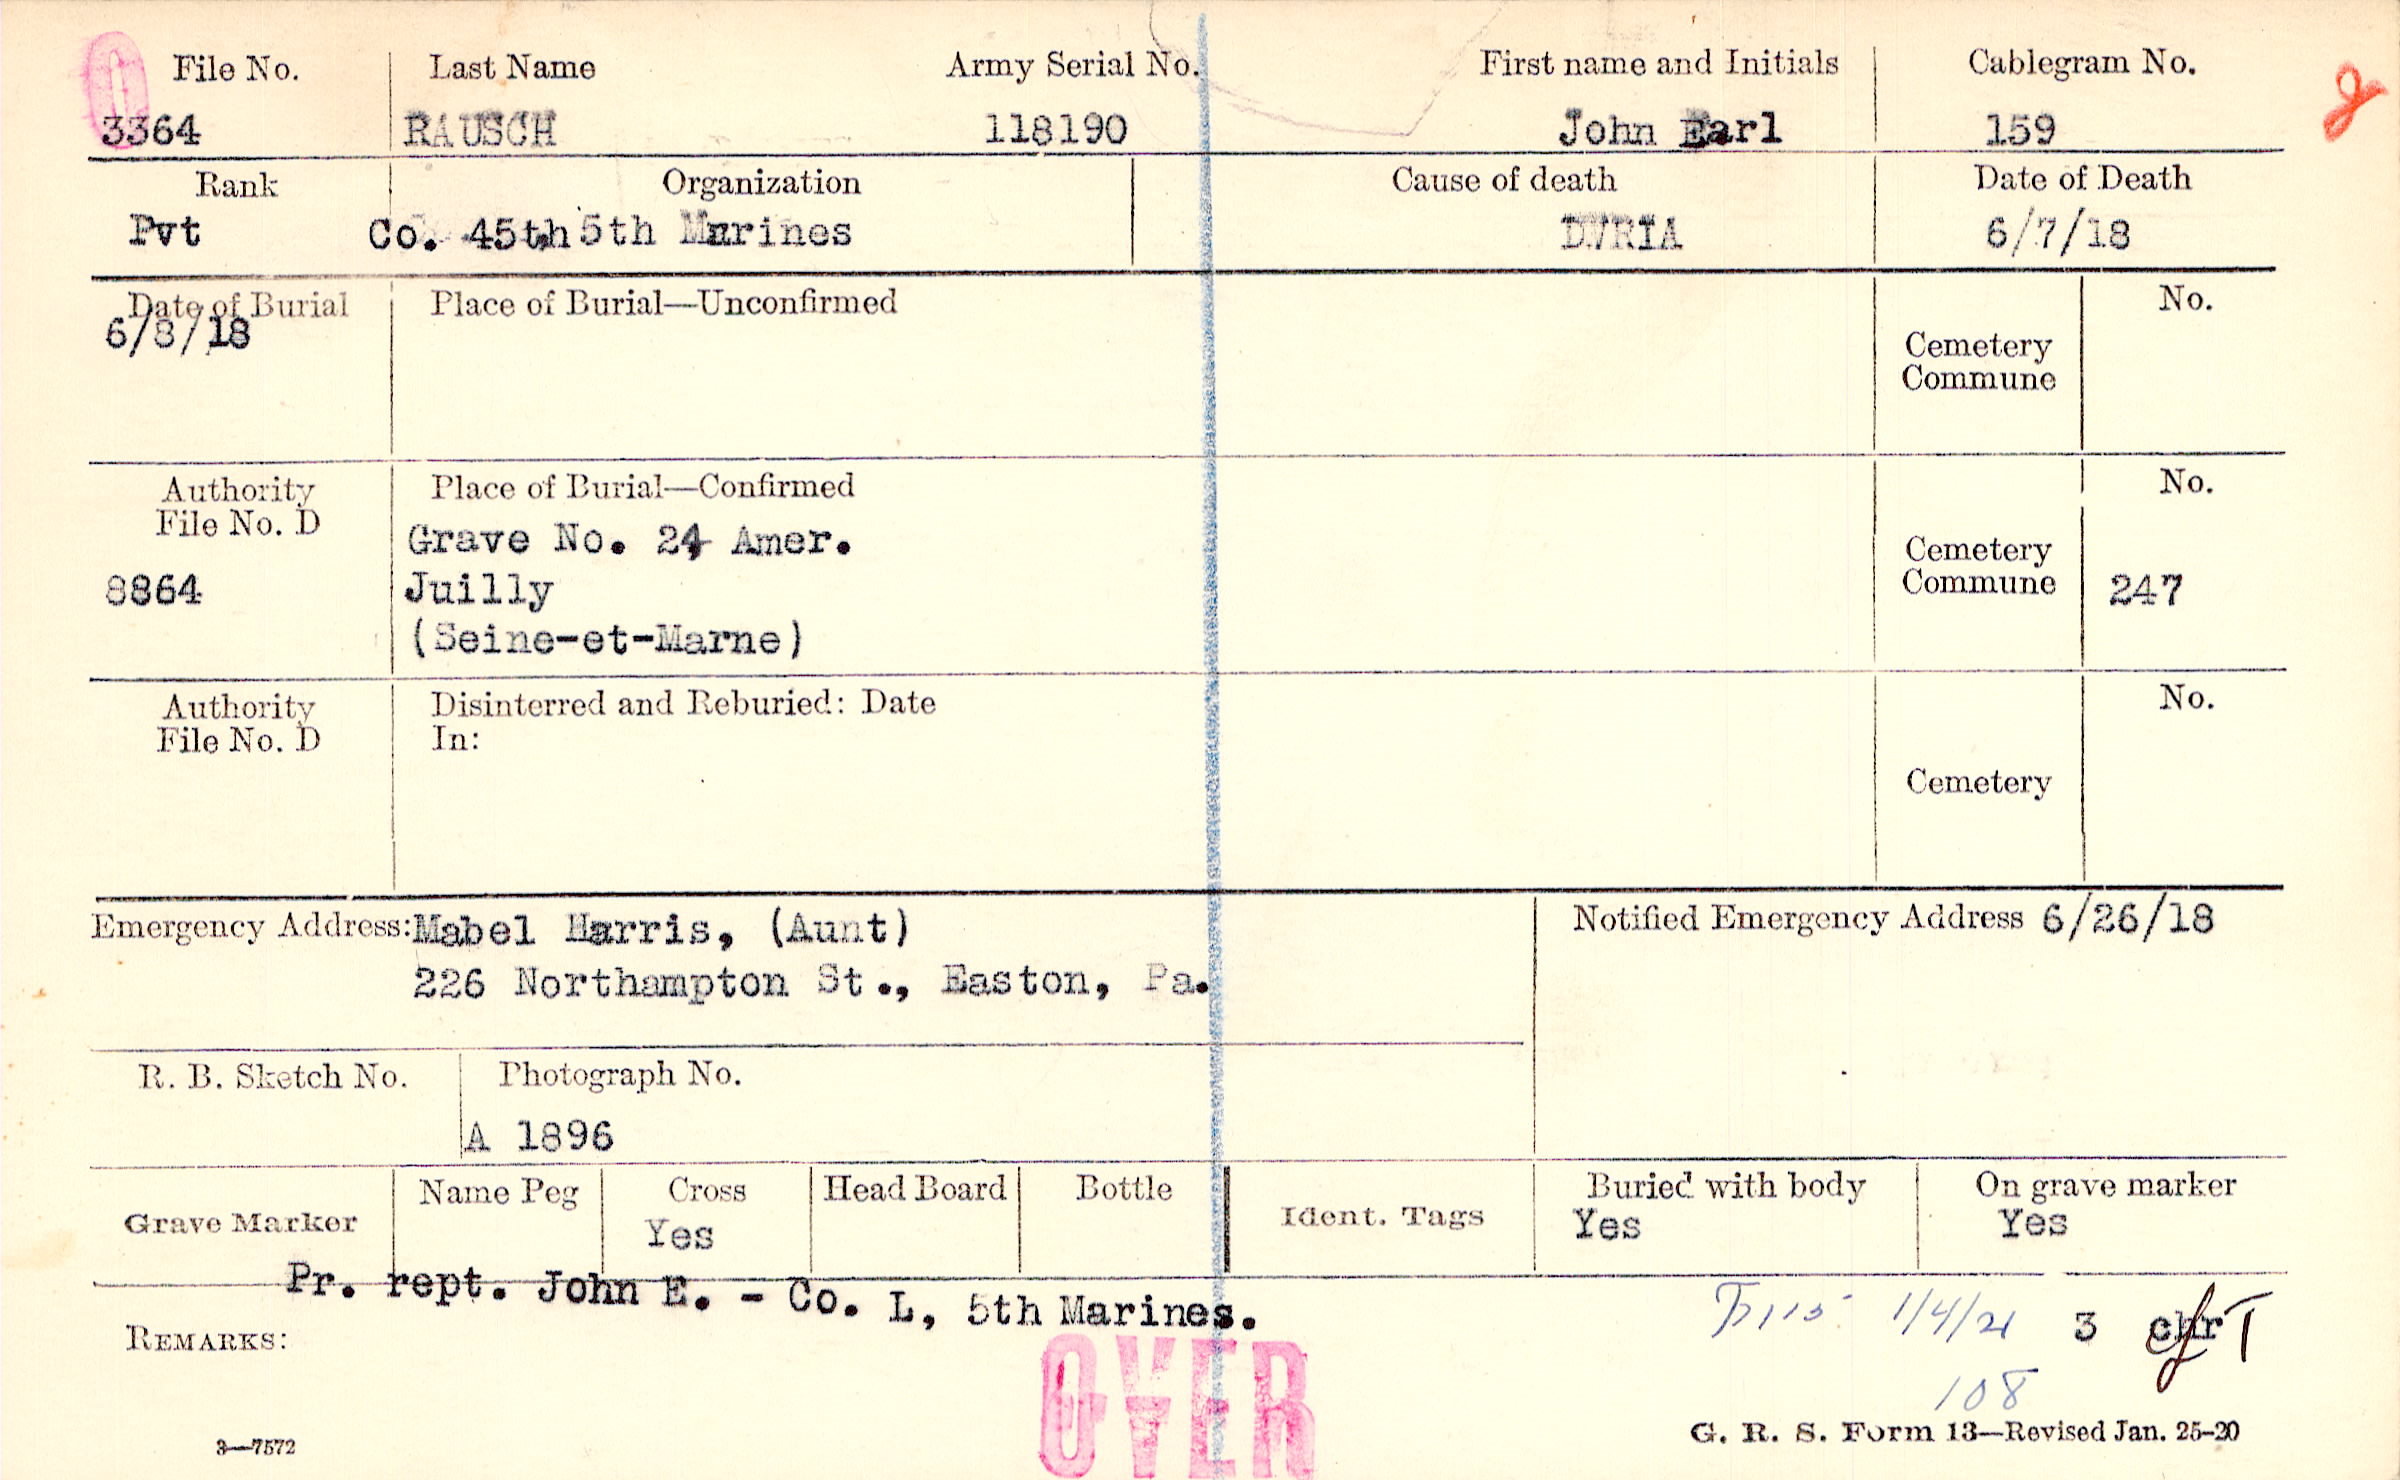 File No. Last Name Army Serial No. First name and Initials Cablegram No.
3364 RAUSCH 118190 John Earl 159
Rank Organization Cause of death Date of Death
Pvt Co. 45th 5th Marines DWRIA 6/7/18
Date of Burial Place of Burial—Unconfirmed No.
6/8/18
Cemetery
Commune
Authority Place of Burial—Confirmed No.
File No. D
Grave No. 24 Amer.
Cemetery
8864 Juilly Commune 247
(Seine-et-Marne)
Authority Disinterred and Reburied: Date No.
File No. D In:
Cemetery
Emergency Address: Mabel Harris, (Aunt) Notified Emergency Address 6/26/18
226 Northampton St., Easton, Pa.
R. B. Sketch No. Photograph No.
A 1896
Grave Marker Name Peg Cross Head Board Bottle Ident. Tags Buried with body On grave marker
Yes Yes Yes
Pr. rept. John E. - Co. L, 5th Marines.
1/4/21 3
REMARKS:
OVER
108
3—7572 G. R. S. Form 13—Revised Jan. 25-20